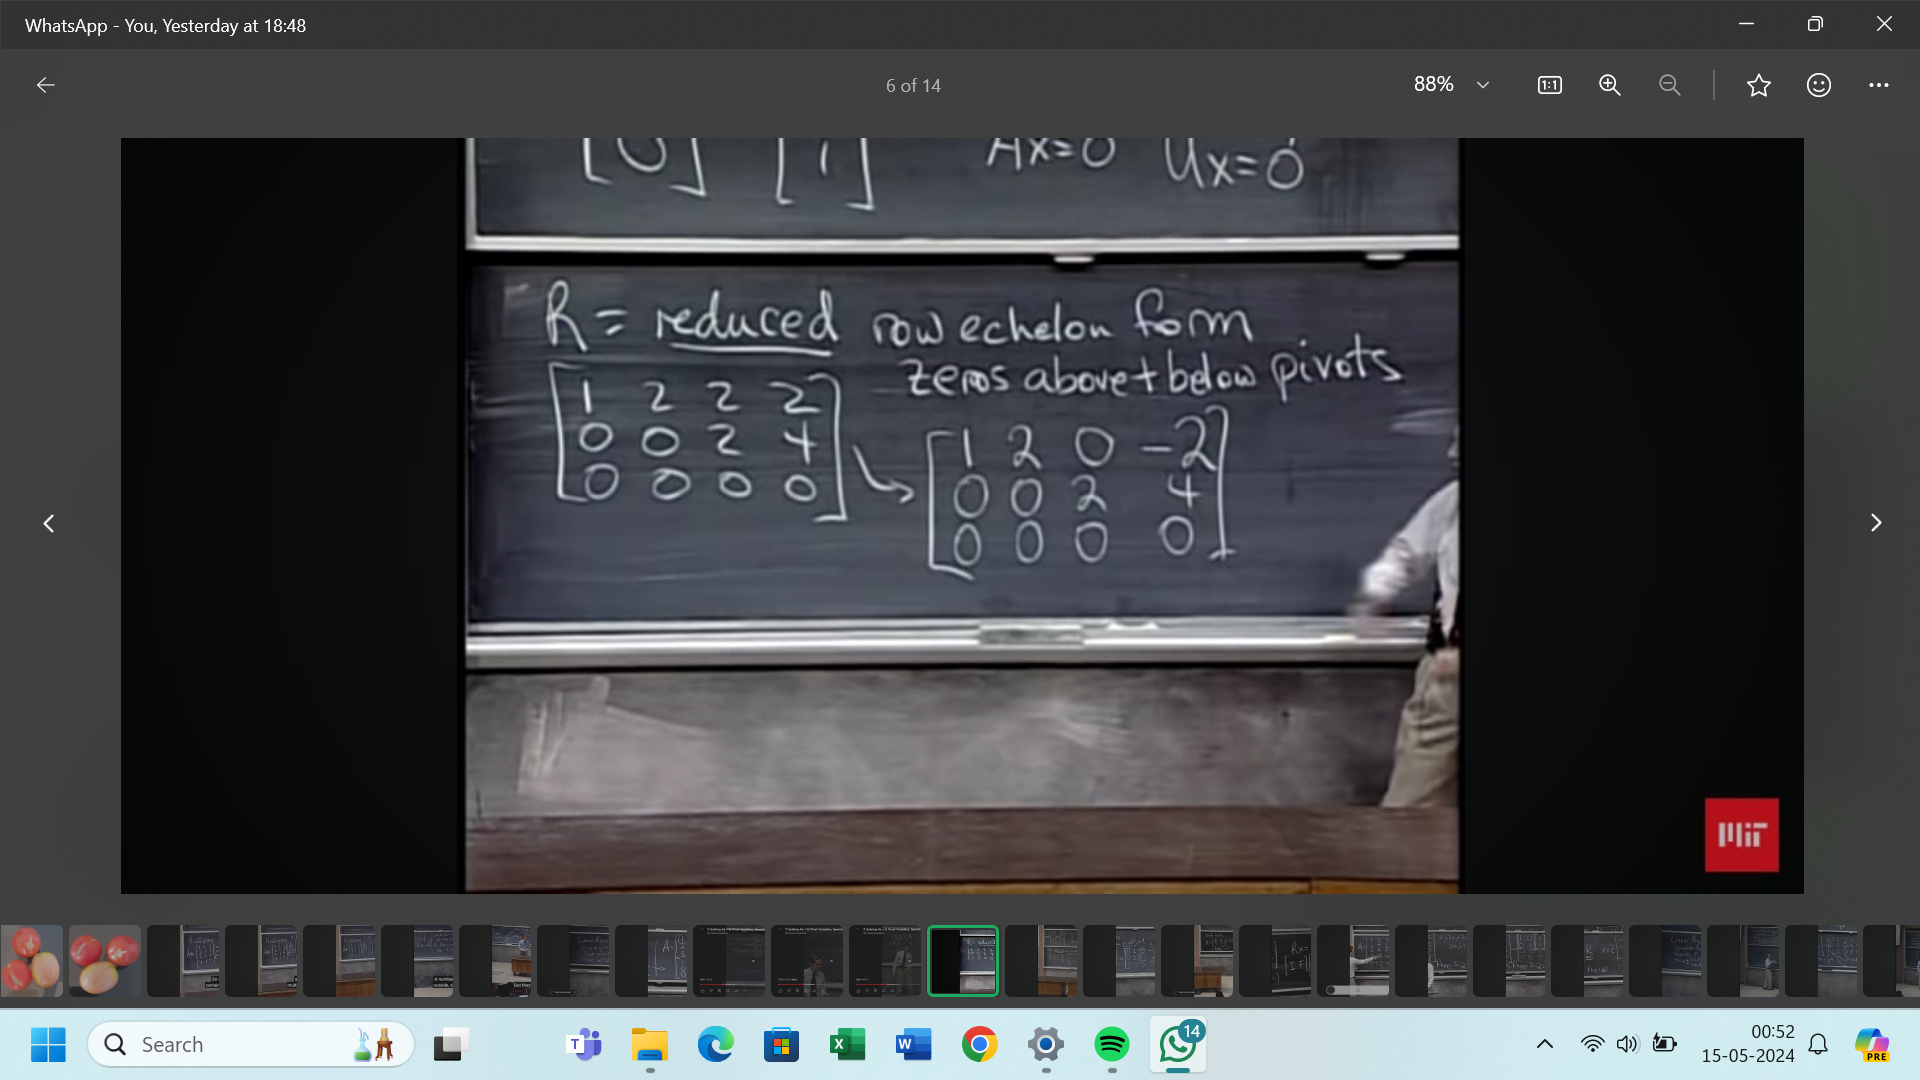 WhatsApp - You, Yesterday at 18:48
6 of 14
88%
1:1
Ax=0 Ux=0
R = reduced row echelon form
zeros above + below pivots
1 2 2 2
0 0 2 4
0 0 0 0
1 2 0 -2
0 0 2 4
0 0 0 0
MIT
Search
14
00:52
15-05-2024
PRE